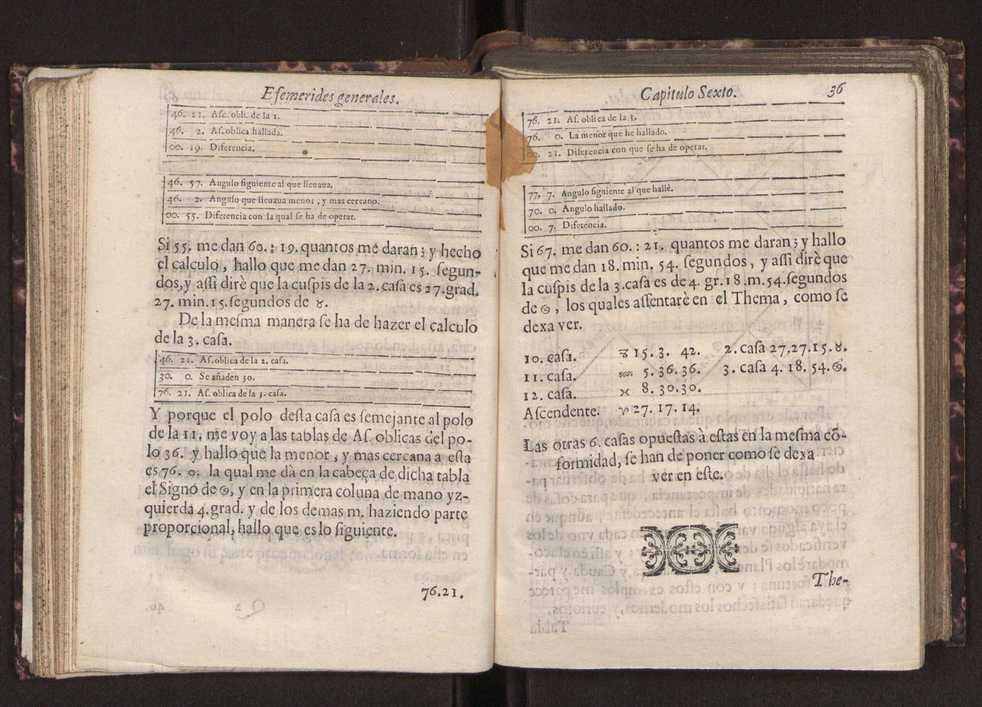 Efemerides generales.
46. 21. Asc. obli. de la 1.
46. 2. Aſ. oblica hallada.
00. 19. Diferencia.
46. 57. Angulo ſiguiente al que lleuaua.
46. 2. Angulo que lleuaua menor, y mas cercano.
00. 55. Diferencia con la qual ſe ha de operar.
Si 55. me dan 60. : 19. quantos me daran; y hecho
el calculo, hallo que me dan 27. min. 15. ſegun-
dos, y aſſi dirè que la cuſpis de la 2. caſa es 27. grad.
27. min. 15. ſegundos de ♉.
De la meſma manera ſe ha de hazer el calculo
de la 3. caſa.
46. 21. Aſ. oblica de la 2. caſa.
30. 0. Se añaden 30.
76. 21. Aſ. oblica de la 3. caſa.
Y porque el polo deſta caſa es ſemejante al polo
de la 11. me voy a las tablas de Aſ. oblicas del po-
lo 36. y hallo que la menor, y mas cercana a eſta
es 76. 0. la qual me dà en la cabeça de dicha tabla
el Signo de ♋, y en la primera coluna de mano yz-
quierda 4. grad. y de los demas m. haziendo parte
proporcional, hallo que es lo ſiguiente.
76. 21.
Capitulo Sexto. 36
76. 21. Aſ. oblica de la 3.
76. 0. La menor que he hallado.
21. Diferencia con que ſe ha de operar.
77. 7. Angulo ſiguiente al que hallè.
70. 0. Angulo hallado.
00. 7. Diferencia.
Si 67. me dan 60. : 21. quantos me daran; y hallo
que me dan 18. min. 54. ſegundos, y aſſi dirè que
la cuſpis de la 3. caſa es de 4. gr. 18. m. 54. ſegundos
de ♋, los quales aſſentarè en el Thema, como ſe
dexa ver.
10. caſa. ♑ 15. 3. 42. 2. caſa 27. 27. 15. ♉.
11. caſa. ♒ 5. 36. 36. 3. caſa 4. 18. 54. ♋.
12. caſa. ♓ 8. 30. 30.
Aſcendente. ♈ 27. 17. 14.
Las otras 6. caſas opueſtas à eſtas en la meſma cõ-
formidad, ſe han de poner como ſe dexa
ver en eſte.
The-